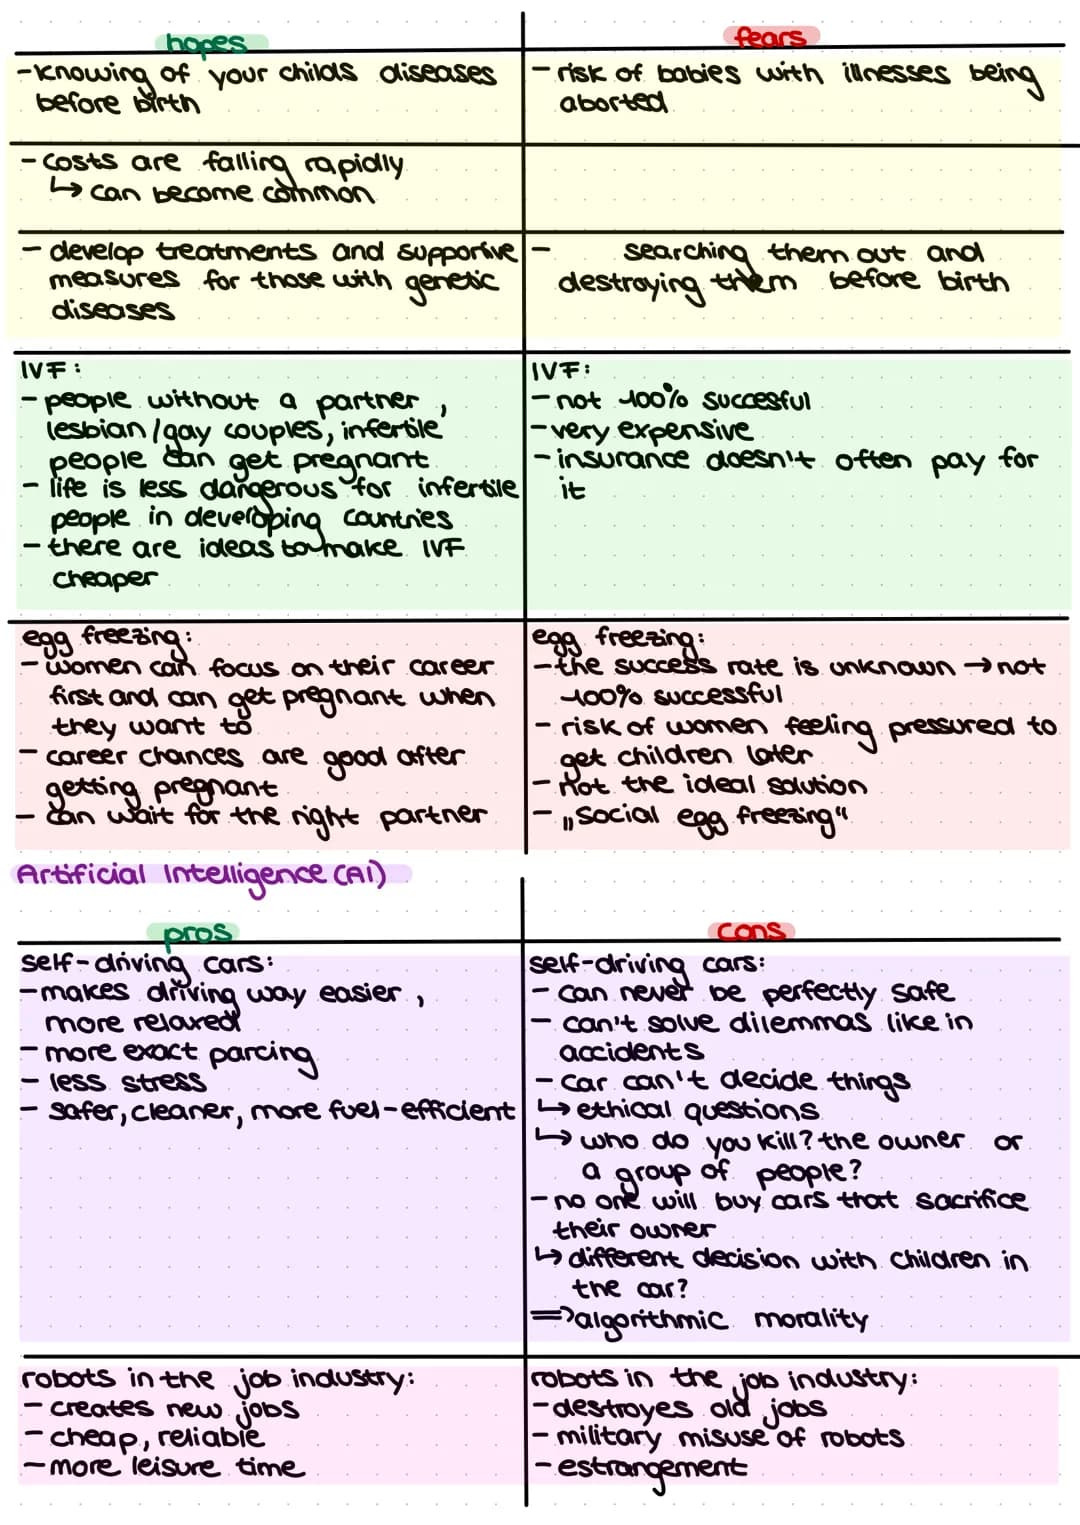 hopes
- knowing of your childs diseases
before birth
- costs are falling rapidly
↳ can become common
- develop treatments and supportive
measures for those with genetic
diseases
IVF:
- people without a partner,
lesbian/gay couples, infertile
people can get pregnant
- life is less dangerous for infertile
people in developing countries
- there are ideas to make IVF
cheaper
egg freezing:
- women can focus on their career
first and can get pregnant when
they want to
- career chances are good after
getting pregnant
- can wait for the right partner
fears
- risk of babies with illnesses being
aborted
- searching them out and
destroying them before birth
IVF:
- not 100% succesful
- very expensive
- insurance doesn't often pay for
it
egg freezing:
- the success rate is unknown → not
100% successful
- risk of women feeling pressured to
get children later
- not the ideal solution
- „social egg freezing“
Artificial Intelligence (AI)
pros
self-driving cars:
- makes driving way easier,
more relaxed
- more exact parcing
- less stress
- safer, cleaner, more fuel-efficient
robots in the job industry:
- creates new jobs
- cheap, reliable
- more leisure time
cons
self-driving cars:
- can never be perfectly safe
- can't solve dilemmas like in
accidents
- car can't decide things
↳ ethical questions
↳ who do you kill? the owner or
a group of people?
- no one will buy cars that sacrifice
their owner
↳ different decision with children in
the car?
⇒ algorithmic morality
robots in the job industry:
- destroyes old jobs
- military misuse of robots
- estrangement